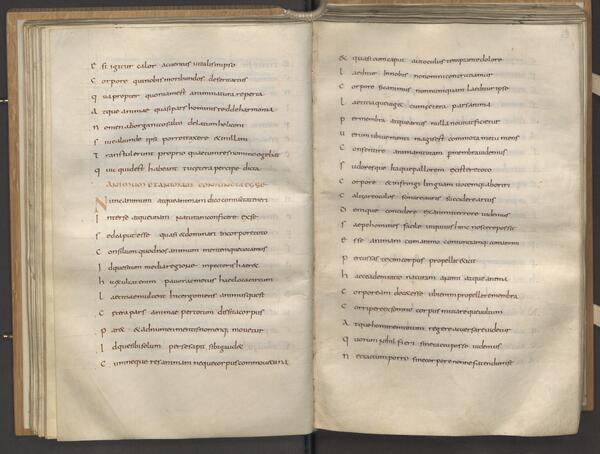 E st igitur calor ac ventus vitalis in ipso
C orpore qui nobis moribundos deserit artus
Q uapropter quoniam est animi natura reperta
A tque animae quasi pars hominis redde harmoniai
N omen ad organicos alto delatum heliconi
S ive aliunde ipsi porro traxere et in illam
T ranstulerunt proprio quae tum res nomine egebat
Q uicquid est habeant tu cetera percipe dicta
ANIMUM ET ANIMAM CONIUNCTA ESSE
N unc animum atque animam dico coniuncta teneri
I nter se atque unam naturam conficere ex se
S ed caput esse quasi et dominari in corpore toto
C onsilium quod nos animum mentemque vocamus
I dque situm media regione in pectoris haeret
H ic exultat enim pavor ac metus haec loca circum
L aetitiae mulcent hic ergo mens animusquest
C etera pars animae per totum dissita corpus
P aret et ad numen mentis momenque movetur
I dque sibi solum per se sapit sibi gaudet
C um neque res animam neque corpus commovet una
Et quasi cum caput aut oculus temptante dolore
L aeditur in nobis non omni concruciamur
C orpore sic animus nonnumquam laeditur ipse
L aetitiaque viget cum cetera pars animai
P er membra atque artus nulla novitate cietur
V erum ubi vementi magis est commota metu mens
C onsentire animam totam per membra videmus
S udoresque ita que pallorem existere toto
C orpore et infringi linguam vocemque aboriri
C aligare oculos sonere auris succidere artus
D enique concidere ex animi terrore videmus
S aepe homines facile ut quivis hinc noscere possit
E sse animam cum animo coniunctam quae cum animi
P ercussa est exim corpus propellit et icit
H aec eadem ratio naturam animi atque animai
C orpoream docet esse ubi enim propellere membra
C orripere ex somno corpus mutareque vultum
A tque hominem totum regere ac versare videtur
Q uorum nihil fieri sine tactu posse videmus
N ec tactum porro sine corpore nonne fatendumst